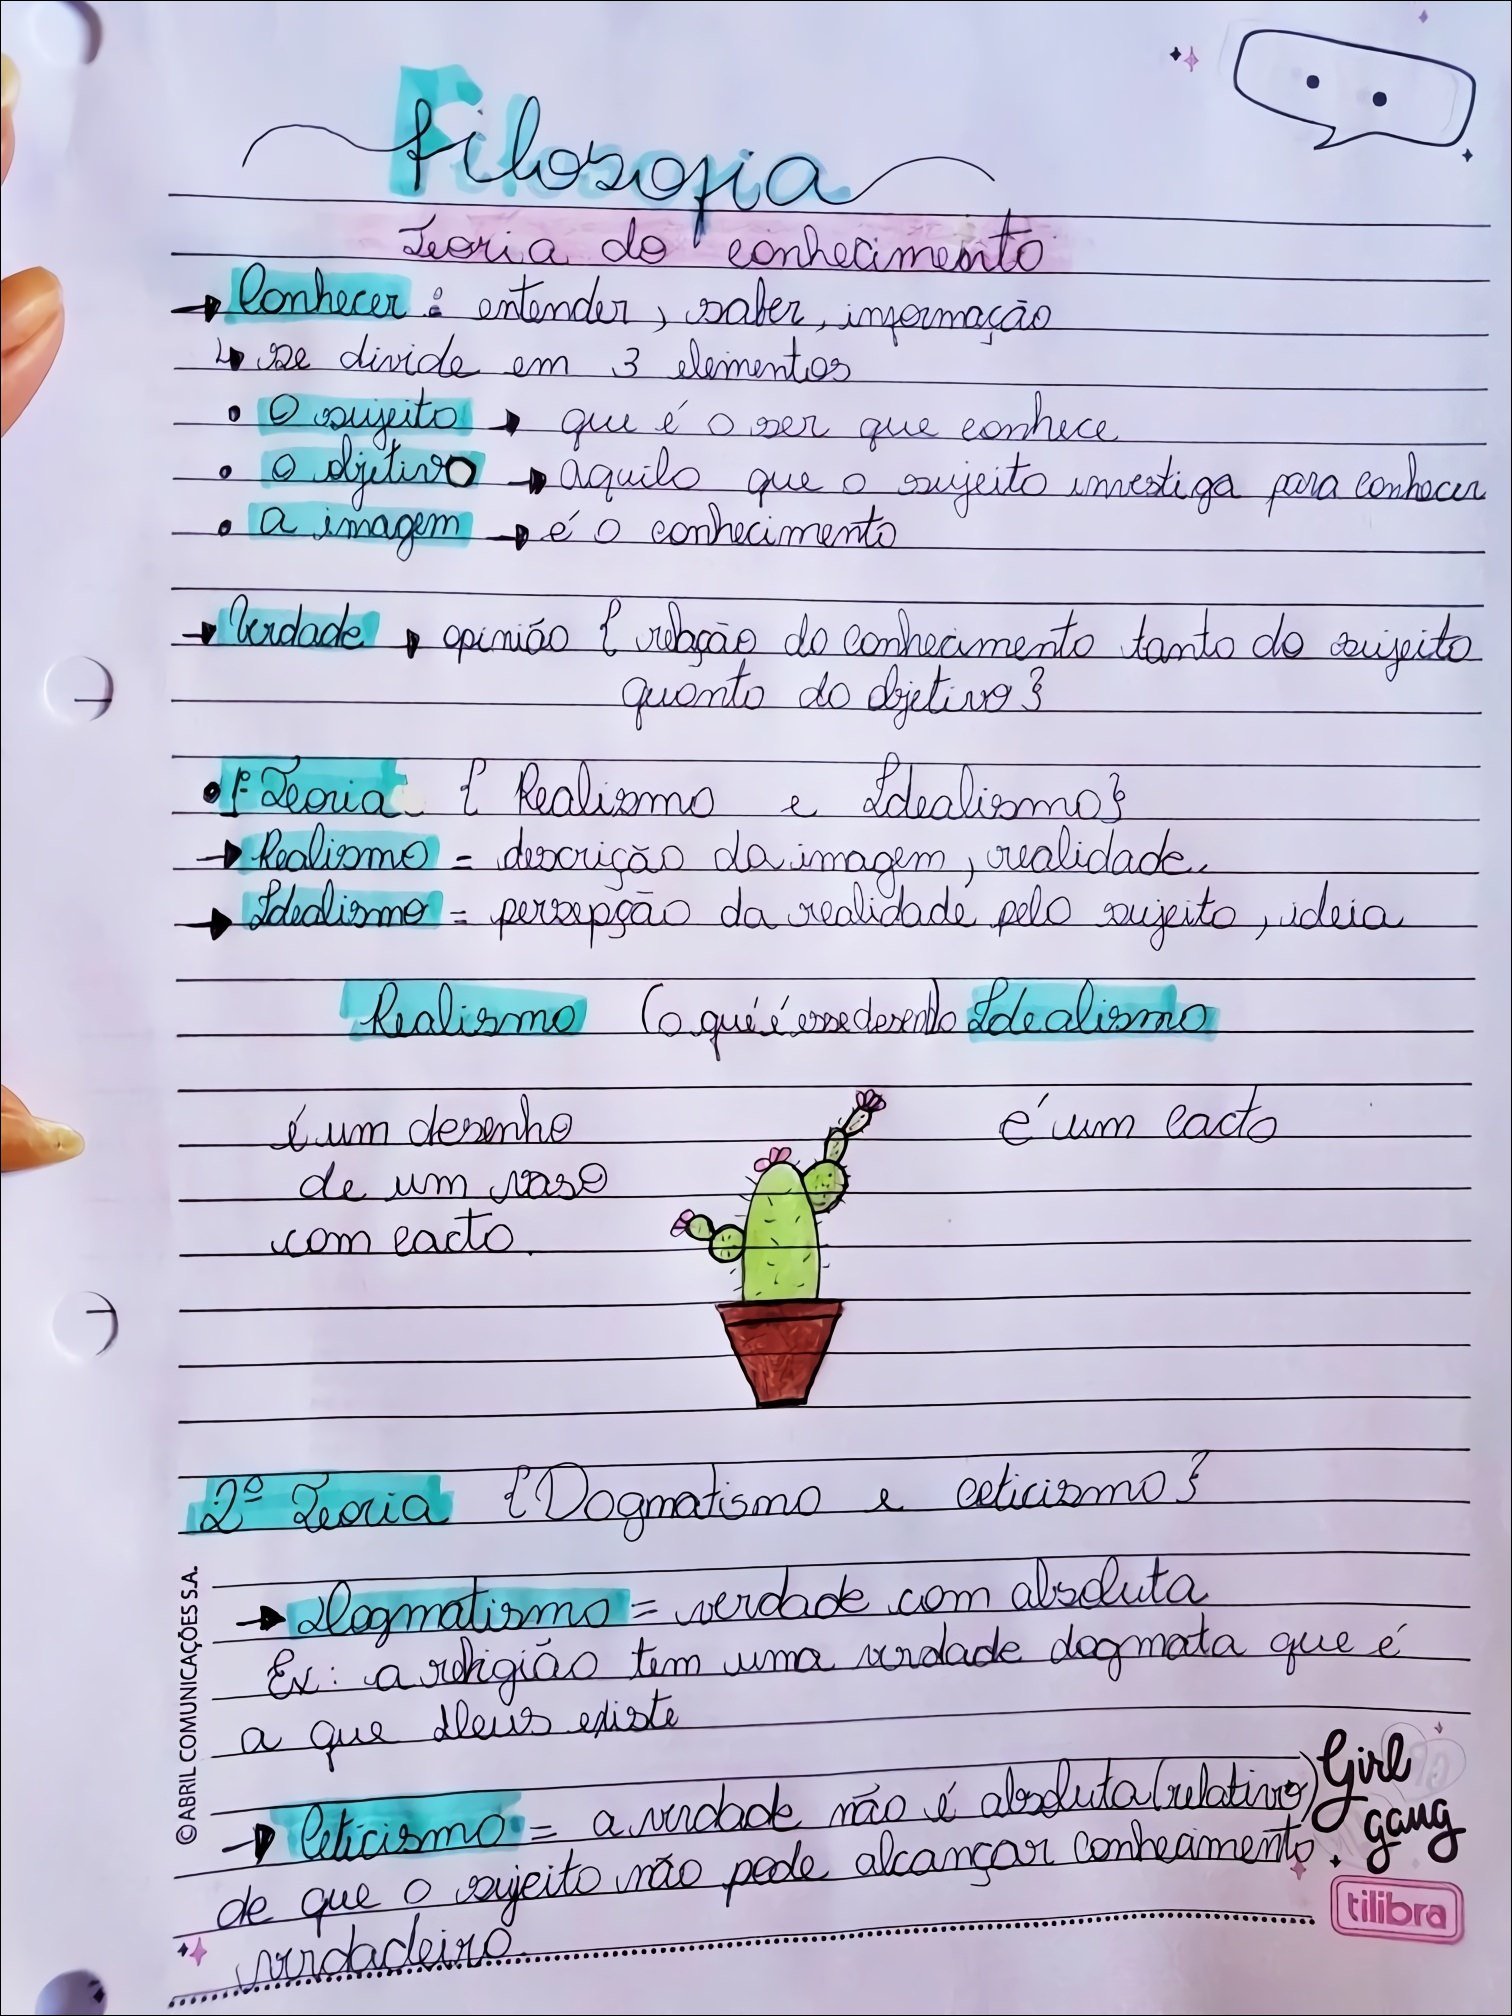 Filosofia
Teoria do conhecimento
→ Conhecer : entender, saber, informação
↳ se divide em 3 elementos
• O sujeito → que é o ser que conhece
• o objetivo → aquilo que o sujeito investiga para conhecer
• a imagem → é o conhecimento
→ Verdade → opinião { relação do conhecimento tanto do sujeito
quanto do objetivo}
• 1º Teoria { Realismo e Idealismo}
→ Realismo = descrição da imagem, realidade.
→ Idealismo = persepção da realidade pelo sujeito, ideia
Realismo (o que é esse desenho) Idealismo
é um desenho
de um vaso
com cacto.
é um cacto
2º Teoria {Dogmatismo e ceticismo}
→ Dogmatismo = verdade com absoluta
Ex: a religião tem uma verdade dogmata que é
a que Deus existe
→ Ceticismo = a verdade não é absoluta (relativo)
de que o sujeito não pode alcançar conhecimento
verdadeiro.
© ABRIL COMUNICAÇÕES S.A.
Girl
gang
tilibra